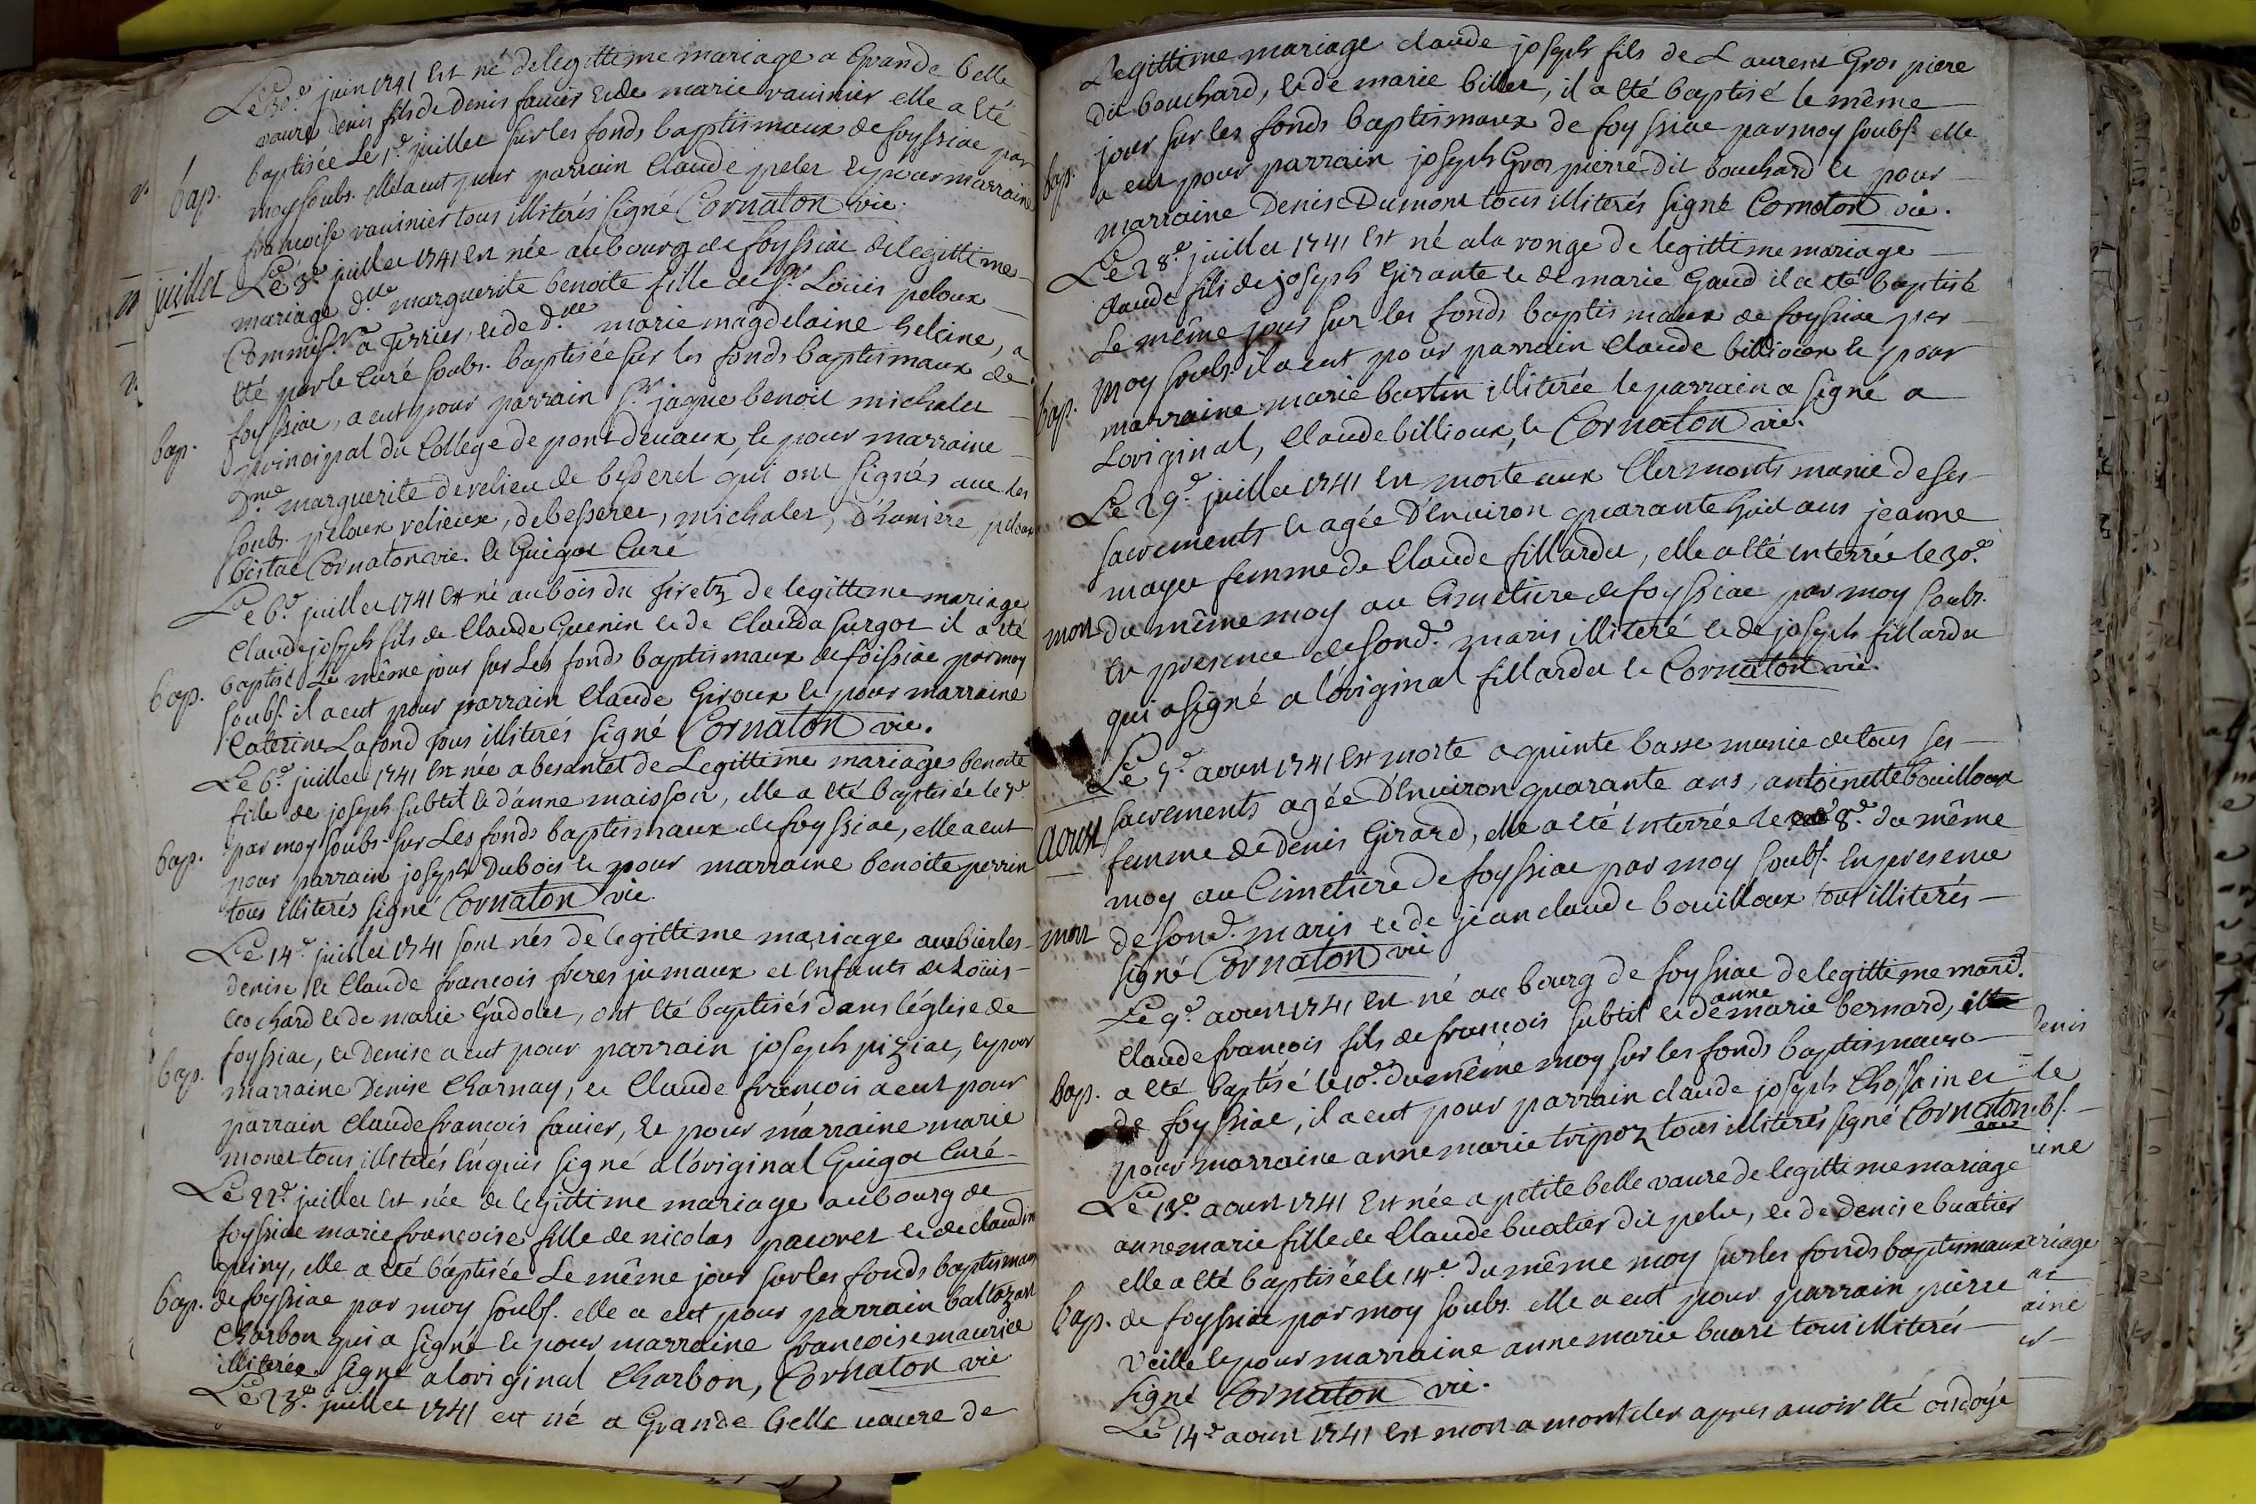 Le 30e juin 1741 est né de legittime mariage a Grande belle
vaure denis fils de denis favier et de marie vauinier elle a eté
baptisée Le 1r juillet sur les fonds baptismaux de foyssiac par
bap.
moy soubs. elle a eut pour parrain Claude pelet et pour marraine
francoise vauinier tous illiterés signé Cornaton vic.
juillet
Le 3e juillet 1741 est née au bourg de foyssiac de legittime
mariage dlle marguerite benoite fille de Sr Loüis peloux
Commissre a Terrier, et de dlle marie magdelaine helcine, a
eté par le Curé soubs. baptisée sur les fonds baptismaux de
foyssiac, a eut pour parrain Sr jaque benoit michalet
bap.
principal du College de pont devaux, et pour marraine
Dme marguerite de velieu de besserel qui ont signés avec les
soubs. peloux velieux, de besserel, michalet, D'haniere peloux
Cornaton vic. et Guigot Curé
Le 6e juillet 1741 est né au bois du firetz de legittime mariage
Claude joseph fils de Claude Guenin et de Clauda surgot il a eté
bap.
baptisé Le même jour sur Les fonds baptismaux de foissiac par moy
soubs. il a eut pour parrain Claude Giroux et pour marraine
Caterine Lafond tous illiterés signé Cornaton vic.
Le 6e juillet 1741 est née a besantet de Legittime mariage benoite
fille de joseph subtil et d'anne maisson, elle a eté baptisée le 7e
bap.
par moy soubs. sur Les fonds baptismaux de foyssiac, elle a eut
pour parrain joseph Dubois et pour marraine benoite perrin
tous illiterés signé Cornaton vic.
Le 14e juillet 1741 sont nés de legittime mariage aux bierles
denise et Claude francois freres jumaux et Enfants de Loüis
cochard et de marie Gadolet, ont eté baptisés dans l'église de
bap.
foyssiac, et Denise a eut pour parrain joseph piziac, et pour
marraine Denise Charnay, et Claude francois a eut pour
parrain Claude francois favier, et pour marraine marie
monet tous illiterés Enquis signé a l'original Guigot Curé
Le 22e juillet est née de legittime mariage au bourg de
foyssiac marie francoise fille de nicolas pauvret et de claudine
quiny, elle a eté baptisée Le même jour sur les fonds baptismaux
bap.
de foyssiac par moy soubs. elle a eut pour parrain baltazart
Charbon qui a signé et pour marraine francoise maurice
illiterée signé a loriginal Charbon, Cornaton vic
Le 23e juillet 1741 est né a Grande belle vaure de
Legittime mariage claude joseph fils de Laurent Gros pierre
dit bouchard, et de marie billet, il a eté baptisé le même
bap.
jour sur les fonds baptismaux de foyssiac par moy soubs. elle
a eut pour parrain joseph Gros pierre dit bouchard et pour
marraine Denise Dumont tous illiterés signé Cornaton vic.
Le 28e juillet 1741 est né a la ronge de legittime mariage
claude fils de joseph Girante et de marie Gaud il a eté baptisé
Le même jour sur les fonds baptismaux de foyssiac par
bap.
moy soubs. il a eut pour parrain Claude billioux et pour
marraine marie bastin illiterée le parrain a signé a
Loriginal, Claude billioux, et Cornaton vic.
Le 29e juillet 1741 est morte aux Clermonts munie de ses
sacrements et agée D'Environ quarante huit ans jeanne
mayet femme de Claude fillardet, elle a eté interrée le 30e
mort
du même moy au Cimetiere de foyssiac par moy soubs.
en presence de son d. maris illiteré et de joseph fillardet
qui a signé a l'original fillardet et Cornaton vic.
Le 7e aoust 1741 est morte a quinte basse munie de tous ses
sacrements agée D'Environ quarante ans, antoinette bouilloux
aoust
femme de Denis Girard, elle a eté interrée le 8e du même
moy au Cimetiere de foyssiac par moy soubs. En presence
mort
de son d. maris et de jean claude bouilloux tous illiterés
signé Cornaton vic
Le 9e aoust 1741 est né au bourg de foyssiac de legittime mari.
Claude francois fils de francois subtil et de anne marie bernard, il
bap.
a eté baptisé le 10e du même moy sur les fonds baptismaux
de foyssiac, il a eut pour parrain claude joseph Chossain et
pour marraine anne marie tripoz tous illiterés signé Cornaton
vic
Le 13e aoust 1741 Est née a petite belle vaure de legittime mariage
anne marie fille de Claude buatier dit pelu, et de Denise buatier
elle a eté baptisée le 14e du même moy sur les fonds baptismaux
bap.
de foyssiac par moy soubs. elle a eut pour parrain pierre
Veille et pour marraine anne marie buari tous illiterés
signé Cornaton vic.
Le 14e aoust 1741 est mort a montcler apres avoir eté ondoyé